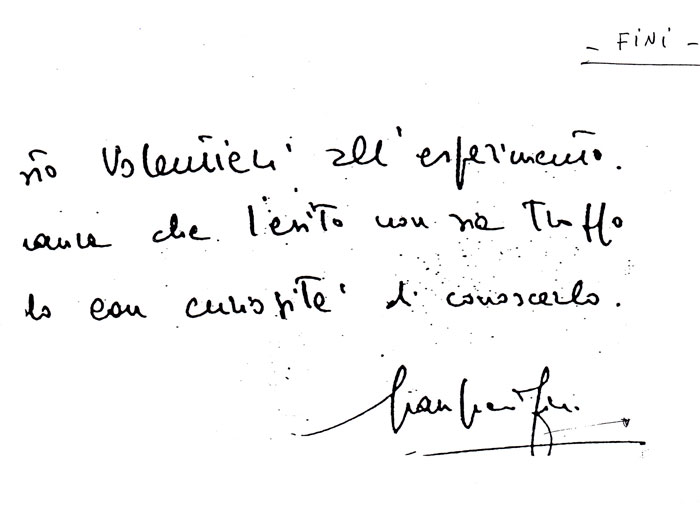 - FINI -
sto volentieri all'esperimento.
ranza che l'esito non sia troppo
to con curiosità di conoscerlo.
Gianfranco Fini